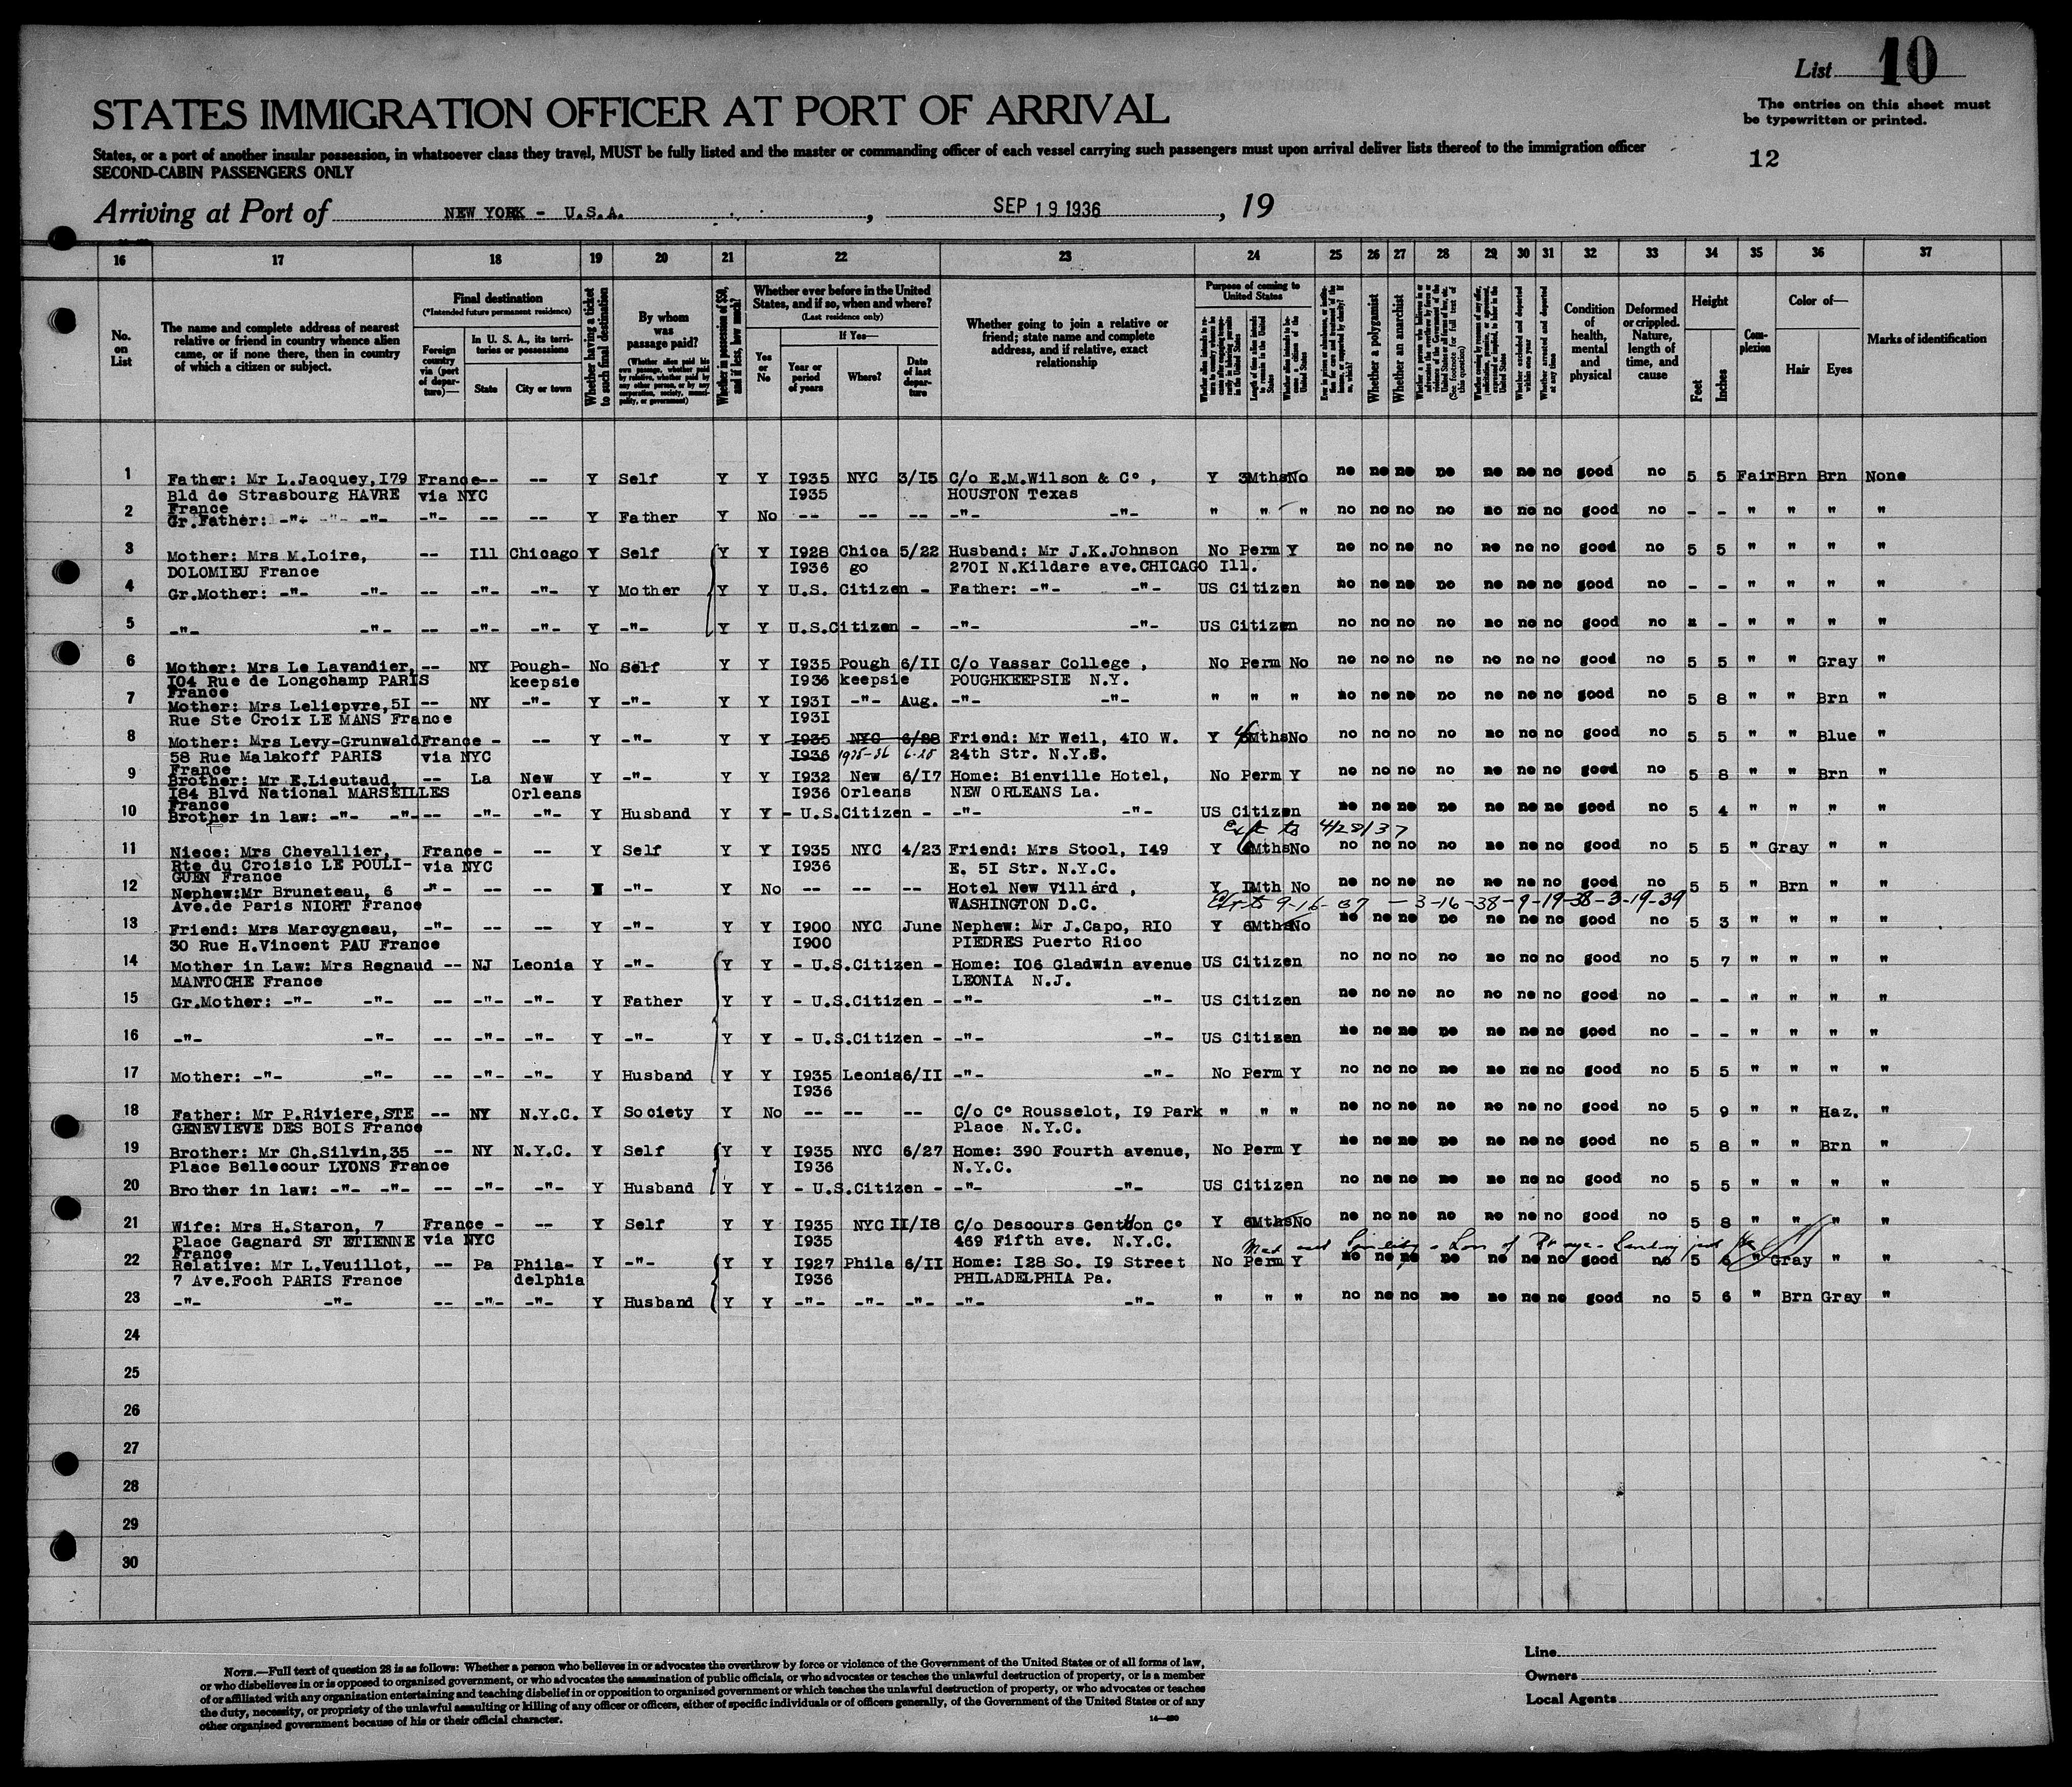 List 10
STATES IMMIGRATION OFFICER AT PORT OF ARRIVAL
The entries on this sheet must
be typewritten or printed.
States, or a port of another insular possession, in whatsoever class they travel, MUST be fully listed and the master or commanding officer of each vessel carrying such passengers must upon arrival deliver lists thereof to the immigration officer
SECOND-CABIN PASSENGERS ONLY
12
Arriving at Port of NEW YORK - U.S.A. , SEP 19 1936 , 19
16 17 18 19 20 21 22 23 24 25 26 27 28 29 30 31 32 33 34 35 36 37
No. on List
The name and complete address of nearest relative or friend in country whence alien came, or if none there, then in country of which a citizen or subject.
Final destination
(*Intended future permanent residence)
Foreign country via (port of departure)—
In U. S. A., its territories or possessions
State
City or town
Whether having a ticket to such final destination
By whom was passage paid?
(Whether alien paid his own passage, whether paid by relative, whether paid by any other person, or by any corporation, society, municipality, or government)
Whether in possession of $50, and if less, how much?
Whether ever before in the United States, and if so, when and where?
(Last residence only)
Yes or No
If Yes—
Year or period of years
Where?
Date of last departure
Whether going to join a relative or friend; state name and complete address, and if relative, exact relationship
Purpose of coming to United States
Length of time alien intends to remain in the United States
Whether a polygamist
Whether an anarchist
Whether excluded and deported within one year
Whether arrested and deported at any time
Condition of health, mental and physical
Deformed or crippled. Nature, length of time, and cause
Height
Feet
Inches
Complexion
Color of—
Hair
Eyes
Marks of identification
1 Father: Mr L.Jacquey,I79 France-- -- Y Self Y Y I935 NYC 3/I5 C/o E.M.Wilson & C° , Y 3MthsNo no no no no no no no good no 5 5 Fair Brn Brn None
Bld de Strasbourg HAVRE via NYC I935 HOUSTON Texas
France
2 Gr.Father: -"- -"- -"- -"- -- -- Y Father Y No -- -- -- -"- -"- " " " no no no no no no no good no - - " " " "
3 Mother: Mrs M.Loire, -- Ill Chicago Y Self Y Y I928 Chica 5/22 Husband: Mr J.K.Johnson No Perm Y no no no no no no no good no 5 5 " " " "
DOLOMIEU France I936 go 270I N.Kildare ave.CHICAGO Ill.
4 Gr.Mother: -"- -"- -- -"- -"- Y Mother Y Y U.S. Citizen - Father: -"- -"- US Citizen no no no no no no no good no - - " " " "
5 -"- -"- -- -"- -"- Y -"- Y Y U.S.Citizen - -"- -"- US Citizen no no no no no no no good no - " " " "
6 Mother: Mrs Le Lavandier, -- NY Pough- No Self Y Y I935 Pough 6/II C/o Vassar College , No Perm No no no no no no no no good no 5 5 " " Gray "
I04 Rue de Longchamp PARIS keepsie I936 keepsie POUGHKEEPSIE N.Y.
France
7 Mother: Mrs Leliepvre,5I -- NY -"- Y -"- Y Y I93I -"- Aug. -"- -"- " " " no no no no no no no good no 5 8 " " Brn "
Rue Ste Croix LE MANS France I93I
8 Mother: Mrs Levy-GrunwaldFrance - -- Y -"- Y Y I935 NYC 6/28 Friend: Mr Weil, 4I0 W. Y MthsNo no no no no no no no good no 5 5 " " Blue "
58 Rue Malakoff PARIS via NYC I936 1935-36 6-25 24th Str. N.Y.
France
9 Brother: Mr E.Lieutaud, -- La New Y -"- Y Y I932 New 6/I7 Home: Bienville Hotel, No Perm Y no no no no no no no good no 5 8 " " Brn "
I84 Blvd National MARSEILLES Orleans I936 Orleans NEW ORLEANS La.
France
10 Brother in law: -"- -"- -- -"- -"- Y Husband Y Y - U.S.Citizen - -"- -"- US Citizen no no no no no no no good no 5 4 " " " "
Ext to 4/28/37
11 Niece: Mrs Chevallier, France - -- Y Self Y Y I935 NYC 4/23 Friend: Mrs Stool, I49 Y 6MthsNo no no no no no no no good no 5 5 " Gray " "
Rte du Croisic LE POULI- via NYC I936 E. 5I Str. N.Y.C.
GUEN France
12 Nephew:Mr Bruneteau, 6 -"- -- -- -"- Y No -- -- -- Hotel New Villard , Y IMth No no no no no no no no good no 5 5 " Brn " "
Ave.de Paris NIORT France WASHINGTON D.C. Ext 9-16-37 - 3-16-38-9-19-38-3-19-39
13 Friend: Mrs Marcygneau, -"- -- -- Y -"- Y Y I900 NYC June Nephew: Mr J.Capo, RIO Y 6MthsNo no no no no no no no good no 5 3 " " " "
30 Rue H.Vincent PAU France I900 PIEDRES Puerto Rico
14 Mother in Law: Mrs Regnaud -- NJ Leonia Y -"- Y Y - U.S.Citizen - Home: I06 Gladwin avenue US Citizen no no no no no no no good no 5 7 " " " "
MANTOCHE France LEONIA N.J.
15 Gr.Mother: -"- -"- -- -"- -"- Y Father Y Y - U.S.Citizen - -"- -"- US Citizen no no no no no no no good no - - " " " "
16 -"- -"- -- -"- -"- Y -"- Y Y - U.S.Citizen - -"- -"- US Citizen no no no no no no no good no - - " " " "
17 Mother: -"- -"- -- -"- -"- Y Husband Y Y I935 Leonia6/II -"- -"- No Perm Y no no no no no no no good no 5 5 " " " "
I936
18 Father: Mr P.Riviere,STE -- NY N.Y.C. Y Society Y No -- -- -- C/o C° Rousselot, I9 Park " " " no no no no no no no good no 5 9 " " Haz. "
GENEVIEVE DES BOIS France Place N.Y.C.
19 Brother: Mr Ch.Silvin,35 -- NY N.Y.C. Y Self Y Y I935 NYC 6/27 Home: 390 Fourth avenue, No Perm Y no no no no no no no good no 5 8 " " Brn "
Place Bellecour LYONS France I936 N.Y.C.
20 Brother in law: -"- -"- -- -"- -"- Y Husband Y Y - U.S.Citizen - -"- -"- US Citizen no no no no no no no good no 5 5 " " " "
21 Wife: Mrs H.Staron, 7 France - -- Y Self Y Y I935 NYC II/I8 C/o Descours Genthon C° Y 6MthsNo no no no no no no no good no 5 8 " " " "
Place Gagnard ST ETIENNE via NYC I935 469 Fifth ave. N.Y.C.
France
22 Relative: Mr L.Veuillot, -- Pa Phila- Y -"- Y Y I927 Phila 6/II Home: I28 So. I9 Street No Perm Y no no no no no no no good no 5 6 " Gray " "
7 Ave.Foch PARIS France delphia I936 PHILADELPHIA Pa.
23 -"- -"- -- -"- -"- Y Husband Y Y -"- -"- -"- -"- -"- " " " no no no no no no no good no 5 6 " Brn Gray "
24
25
26
27
28
29
30
NOTE.—Full text of question 28 is as follows: Whether a person who believes in or advocates the overthrow by force or violence of the Government of the United States or of all forms of law,
or who disbelieves in or is opposed to organized government, or who advocates the assassination of public officials, or who advocates or teaches the unlawful destruction of property, or is a member
of or affiliated with any organization entertaining and teaching disbelief in or opposition to organized government or which teaches the unlawful destruction of property, or who advocates or teaches
the duty, necessity, or propriety of the unlawful assaulting or killing of any officer or officers, either of specific individuals or of officers generally, of the Government of the United States or of any
other organized government because of his or their official character.
Line
Owners
Local Agents